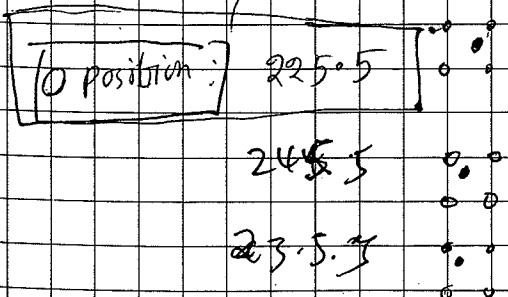 0 position: 225.5
245.5
23.5.3